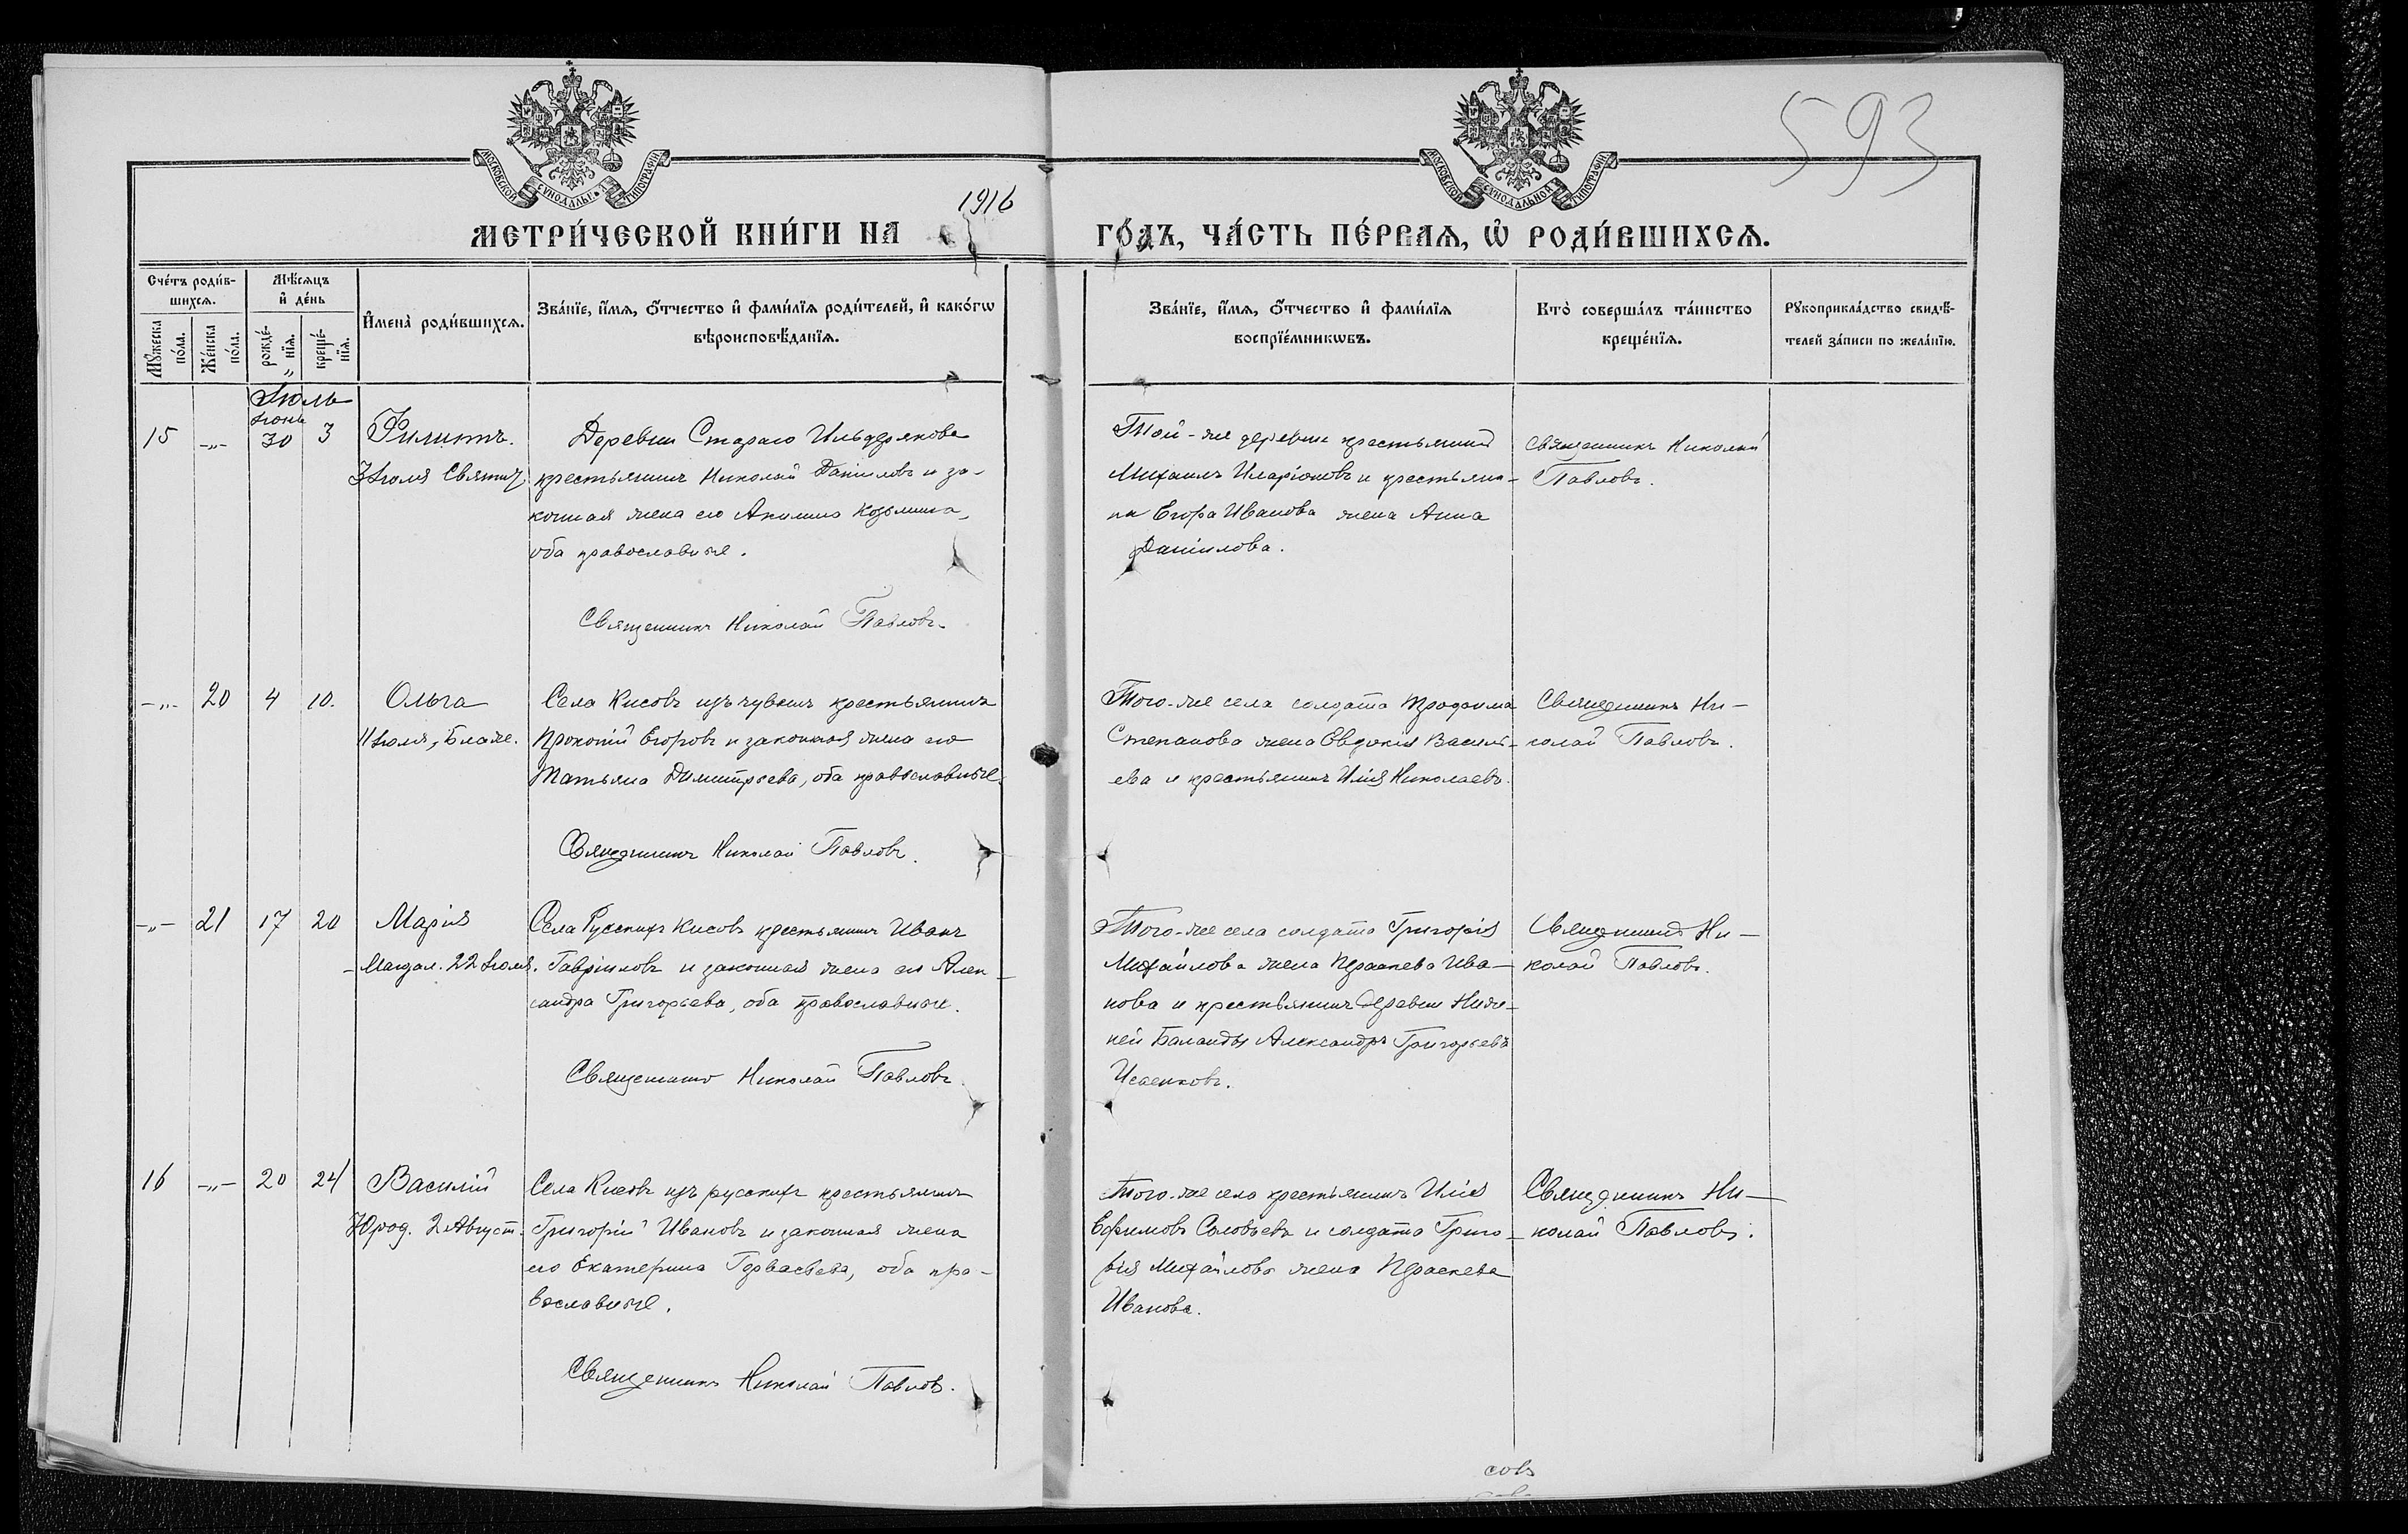 593
МОСКОВСКОЙ СѴНОДАЛЬН. ТИПОГРАФІИ
МОСКОВСКОЙ СѴНОДАЛЬНОЙ ТИПОГРАФІИ
1916
МЕТРИ́ЧЕСКОЙ КНИ́ГИ НА ГО́ДЪ, ЧА́СТЬ ПЕ́РВАЯ, Ѡ҆ РОДИ́ВШИХСѦ.
Сче́тъ роди́в-
шихсѧ.
Мꙋ́жеска по́ла.
Же́нска по́ла.
Мѣ́сѧцъ и҆ де́нь
рожде́-
нїѧ.
креще́-
нїѧ.
И҆мена̀ роди́вшихсѧ.
Зва́нїе, и҆́мѧ, ѻ҆́тчество и҆ фами́лїѧ роди́телей, и҆ како́гѡ
вѣроисповѣ́данїѧ.
Зва́нїе, и҆́мѧ, ѻ҆́тчество и҆ фами́лїѧ
воспрїе́мникѡвъ.
Кто̀ соверша́лъ та́инство
креще́нїѧ.
Рꙋкоприкла́дство свидѣ́-
телей за́писи по жела́нїю.
Іюль
Іюнь
15 -„- 30 3 Филиппъ.
3 Іюля Святит.
Деревни Стараго Ильдерякова
крестьянинъ Николай Даніиловъ и за-
конная жена его Акилина Козьмина,
оба православные.
Священникъ Николай Павловъ.
Той-же деревни крестьянинъ
Михаилъ Иларіоновъ и крестьяни-
на Егора Иванова жена Анна
Даніилова.
Священникъ Николай
Павловъ.
-„- 20 4 10. Ольга
11 Іюля, Блаже.
Села Кисовъ изъ чувашъ крестьянинъ
Прокопій Егоровъ и законная жена его
Татьяна Димитріева, оба православные.
Священникъ Николай Павловъ.
Того-же села солдата Трофима
Степанова жена Евдокія Василь-
ева и крестьянинъ Илія Николаевъ.
Священникъ Ни-
колай Павловъ.
-„- 21 17 20 Марія
Магдал. 22 Іюля.
Села Русскихъ Кисовъ крестьянинъ Иванъ
Гавріиловъ и законная жена его Алек-
сандра Григорьева, оба православные.
Священникъ Николай Павловъ
Того-же села солдата Григорія
Михайлова жена Параскева Ива-
нова и крестьянинъ деревни Ниж-
ней Баланды Александръ Григорьевъ
Исаенковъ.
Священникъ Ни-
колай Павловъ.
16 -„- 20 24 Василій
Юрод. 2 Август.
Села Кисовъ изъ русскихъ крестьянинъ
Григорій Ивановъ и законная жена
его Екатерина, оба пра-
вославные.
Священникъ Николай Павловъ.
Того-же села крестьянинъ Илія
Ефимовъ Соловьевъ и солдата Григо-
рія Михайлова жена Параскева
Иванова.
Священникъ Ни-
колай Павловъ.
совъ